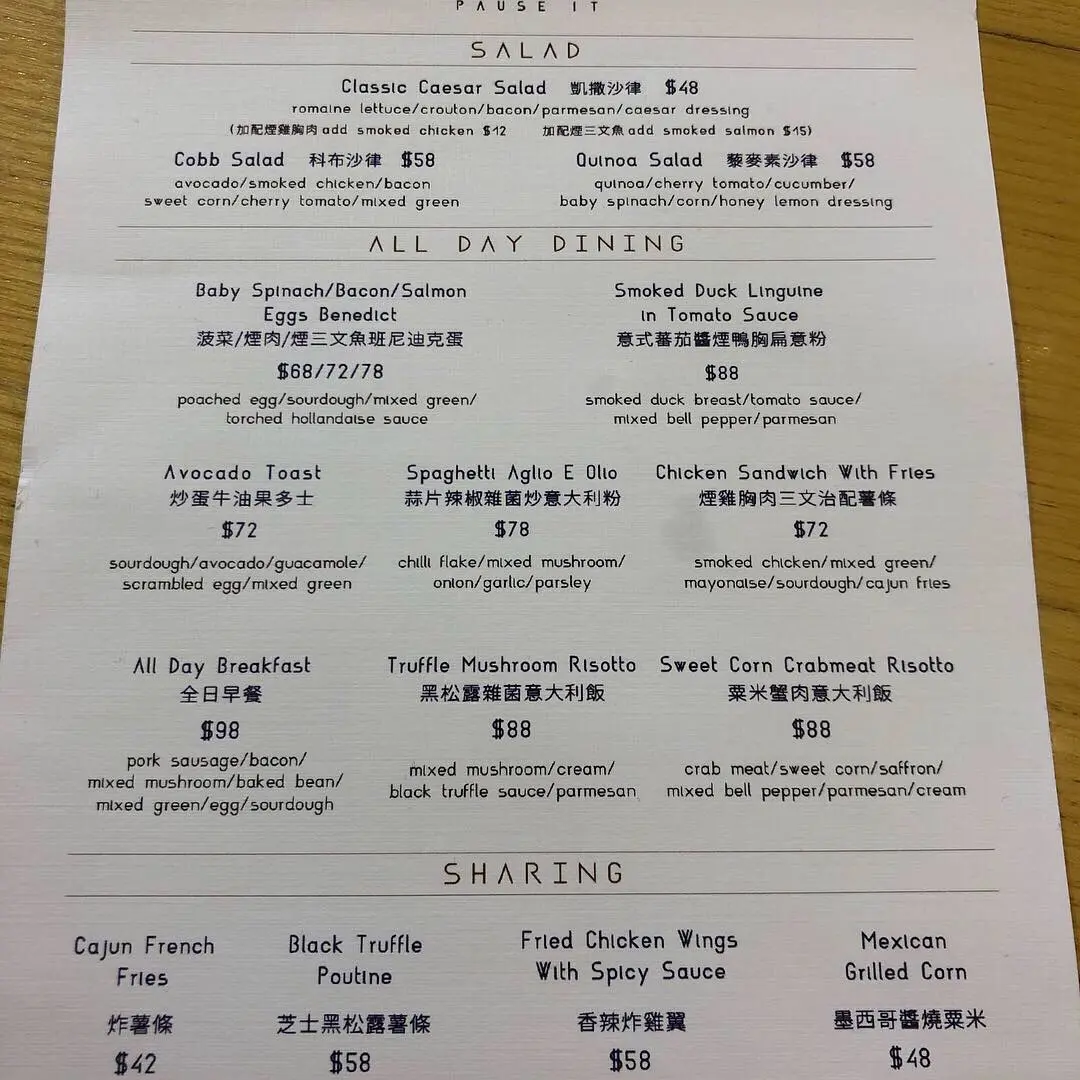 PAUSE IT
SALAD
Classic Caesar Salad 凱撒沙律 $48
romaine lettuce/crouton/bacon/parmesan/caesar dressing
(加配煙雞胸肉 add smoked chicken $12 加配煙三文魚 add smoked salmon $15)
Cobb Salad 科布沙律 $58
avocado/smoked chicken/bacon
sweet corn/cherry tomato/mixed green
Quinoa Salad 藜麥素沙律 $58
quinoa/cherry tomato/cucumber/
baby spinach/corn/honey lemon dressing
ALL DAY DINING
Baby Spinach/Bacon/Salmon
Eggs Benedict
菠菜/煙肉/煙三文魚班尼迪克蛋
$68/72/78
poached egg/sourdough/mixed green/
torched hollandaise sauce
Smoked Duck Linguine
in Tomato Sauce
意式蕃茄醬煙鴨胸扁意粉
$88
smoked duck breast/tomato sauce/
mixed bell pepper/parmesan
Avocado Toast
炒蛋牛油果多士
$72
sourdough/avocado/guacamole/
scrambled egg/mixed green
Spaghetti Aglio E Olio
蒜片辣椒雜菌炒意大利粉
$78
chilli flake/mixed mushroom/
onion/garlic/parsley
Chicken Sandwich With Fries
煙雞胸肉三文治配薯條
$72
smoked chicken/mixed green/
mayonaise/sourdough/cajun fries
All Day Breakfast
全日早餐
$98
pork sausage/bacon/
mixed mushroom/baked bean/
mixed green/egg/sourdough
Truffle Mushroom Risotto
黑松露雜菌意大利飯
$88
mixed mushroom/cream/
black truffle sauce/parmesan
Sweet Corn Crabmeat Risotto
粟米蟹肉意大利飯
$88
crab meat/sweet corn/saffron/
mixed bell pepper/parmesan/cream
SHARING
Cajun French
Fries
炸薯條
$42
Black Truffle
Poutine
芝士黑松露薯條
$58
Fried Chicken Wings
With Spicy Sauce
香辣炸雞翼
$58
Mexican
Grilled Corn
墨西哥醬燒粟米
$48